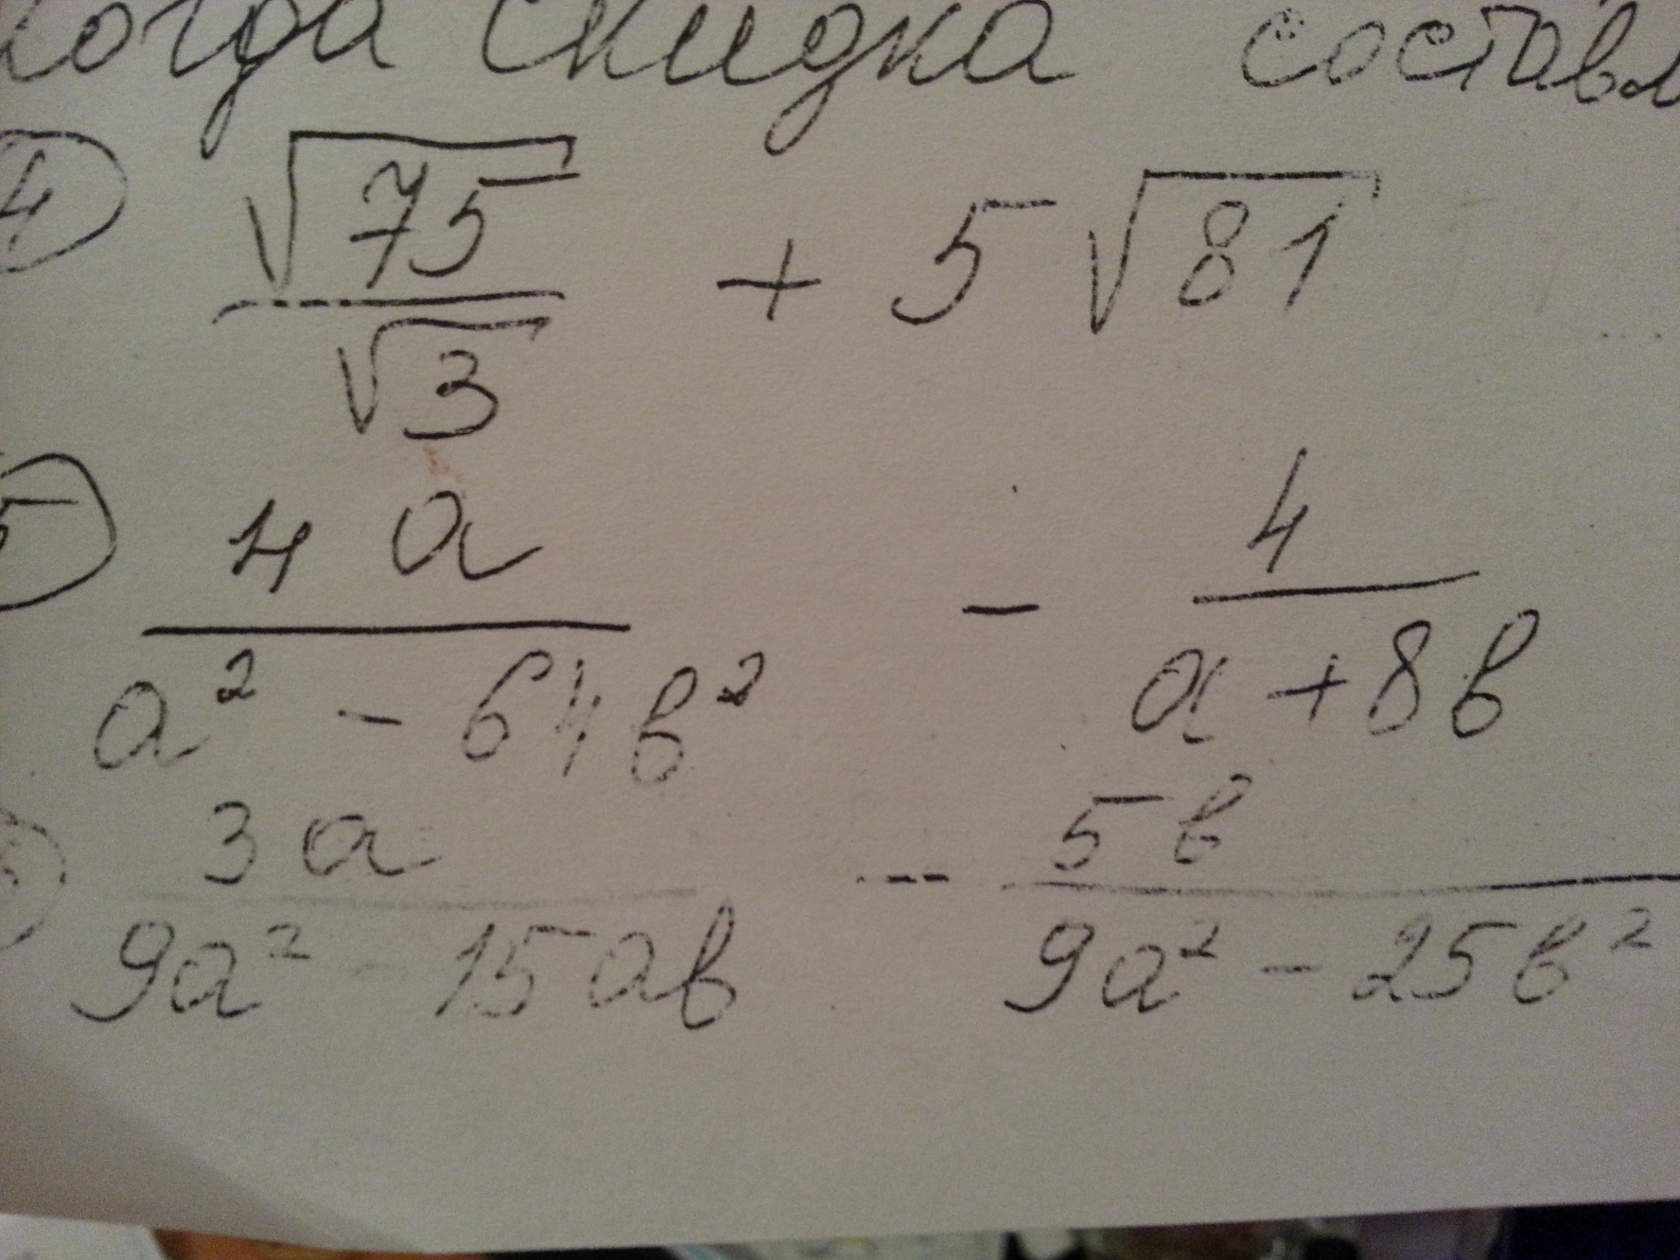 когда скидка составл
4 √75/√3 + 5√81
5 4a/(a² - 64b²) - 4/(a + 8b)
3a/(9a² - 15ab) - 5b/(9a² - 25b²)